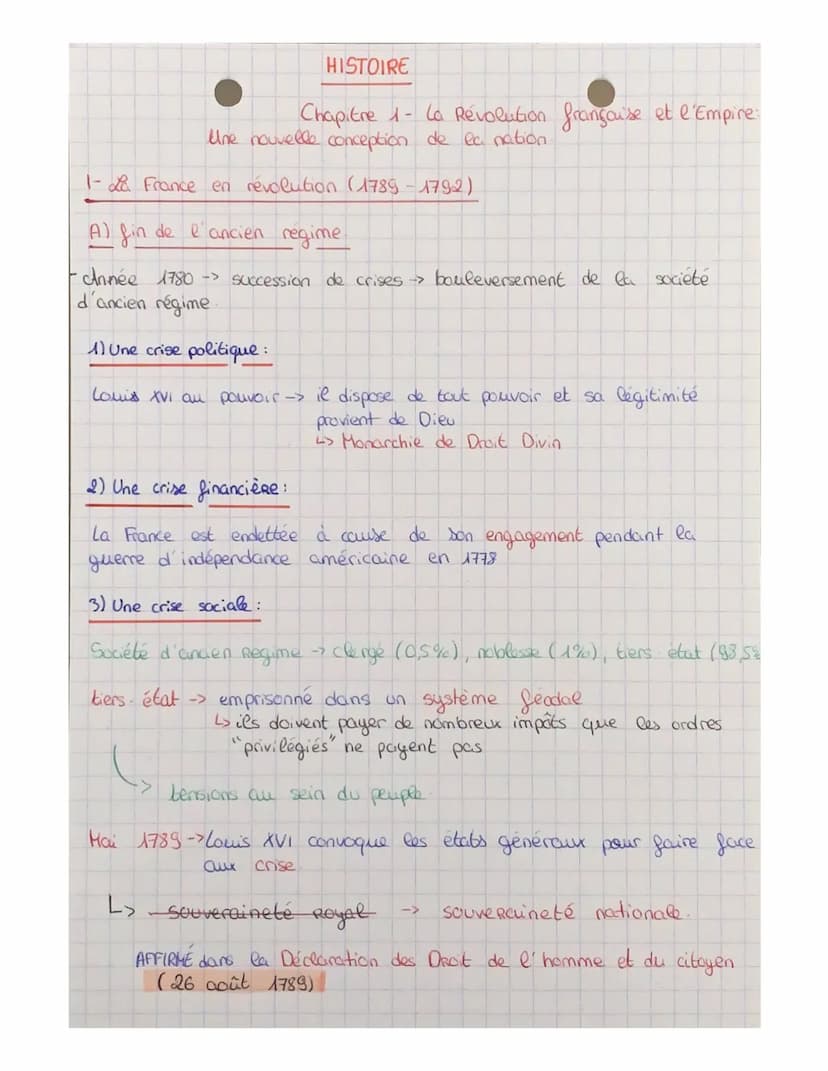 HISTOIRE
Chapitre 1 - La Révolution française et l'Empire:
Une nouvelle conception de la nation
I- La France en révolution (1789 - 1792)
A) fin de l'ancien régime
- Année 1780 -> succession de crises -> bouleversement de la société
d'ancien régime.
1) Une crise politique :
Louis XVI au pouvoir -> il dispose de tout pouvoir et sa légitimité
provient de Dieu
↳ Monarchie de Droit Divin
2) Une crise financière :
La France est endettée à cause de son engagement pendant la
guerre d'indépendance américaine en 1778
3) Une crise sociale :
Société d'ancien Regime -> clergé (0,5%), noblesse (1%), tiers état (98,5%
tiers-état -> emprisonné dans un système féodal
↳ ils doivent payer de nombreux impôts que les ordres
"privilégiés" ne payent pas
-> tensions au sein du peuple
Mai 1789 -> Louis XVI convoque les états généraux pour faire face
aux crise
↳ souveraineté royal -> souveraineté nationale.
AFFIRMÉ dans la Déclaration des Droit de l'homme et du citoyen
(26 août 1789)